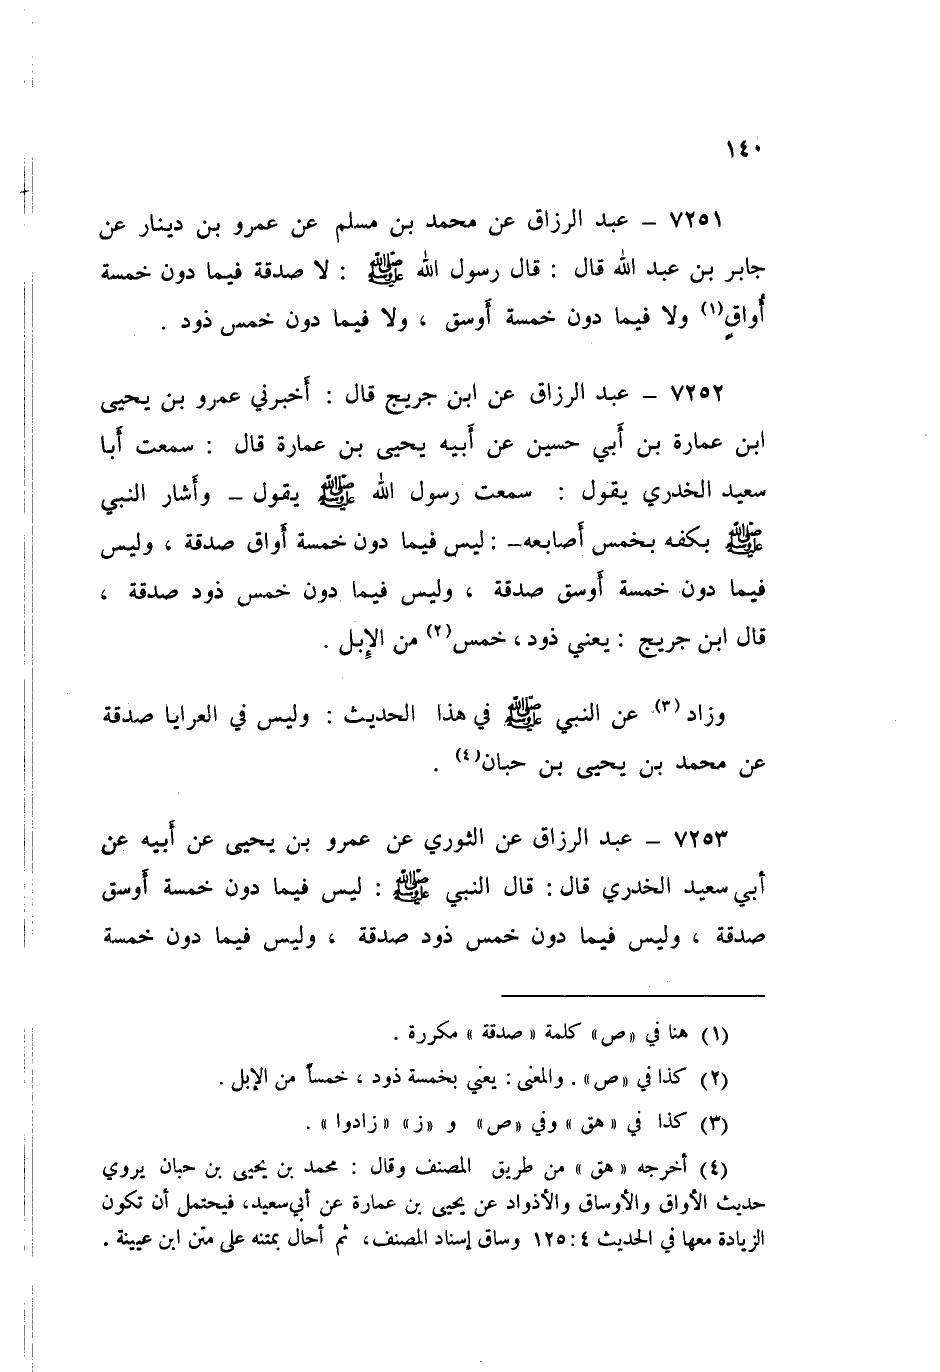 ١٤٠
٧٢٥١ – عبد الرزاق عن محمد بن مسلم عن عمرو بن دينار عن
جابر بن عبد الله قال : قال رسول الله ﷺ : لا صدقة فيما دون خمسة
أَواقٍ(١) ولا فيما دون خمسة أَوسق ، ولا فيما دون خمس ذود .
٧٢٥٢ – عبد الرزاق عن ابن جريج قال : أَخبرني عمرو بن يحيى
ابن عمارة بن أَبي حسين عن أَبيه يحيى بن عمارة قال : سمعت أَبا
سعيد الخدري يقول : سمعت رسول الله ﷺ يقول – وأَشار النبي
ﷺ بكفه بخمس أَصابعه– : ليس فيما دون خمسة أَواق صدقة ، وليس
فيما دون خمسة أَوسق صدقة ، وليس فيما دون خمس ذود صدقة ،
قال ابن جريج : يعني ذود ، خمس(٢) من الإِبل .
وزاد(٣) عن النبي ﷺ في هذا الحديث : وليس في العرايا صدقة
عن محمد بن يحيى بن حبان(٤) .
٧٢٥٣ – عبد الرزاق عن الثوري عن عمرو بن يحيى عن أَبيه عن
أَبي سعيد الخدري قال : قال النبي ﷺ : ليس فيما دون خمسة أَوسق
صدقة ، وليس فيما دون خمس ذود صدقة ، وليس فيما دون خمسة
(١) هنا في «ص» كلمة «صدقة» مكررة .
(٢) كذا في «ص» . والمعنى : يعني بخمسة ذود ، خمساً من الإبل .
(٣) كذا في «هق» وفي «ص» و «ز» «زادوا» .
(٤) أخرجه «هق» من طريق المصنف وقال : محمد بن يحيى بن حبان يروي
حديث الأواق والأوساق والأذواد عن يحيى بن عمارة عن أبي سعيد، فيحتمل أن تكون
الزيادة معها في الحديث ٤ : ١٢٥ وساق إسناد المصنف، ثم أحال بمتنه على متن ابن عيينة .